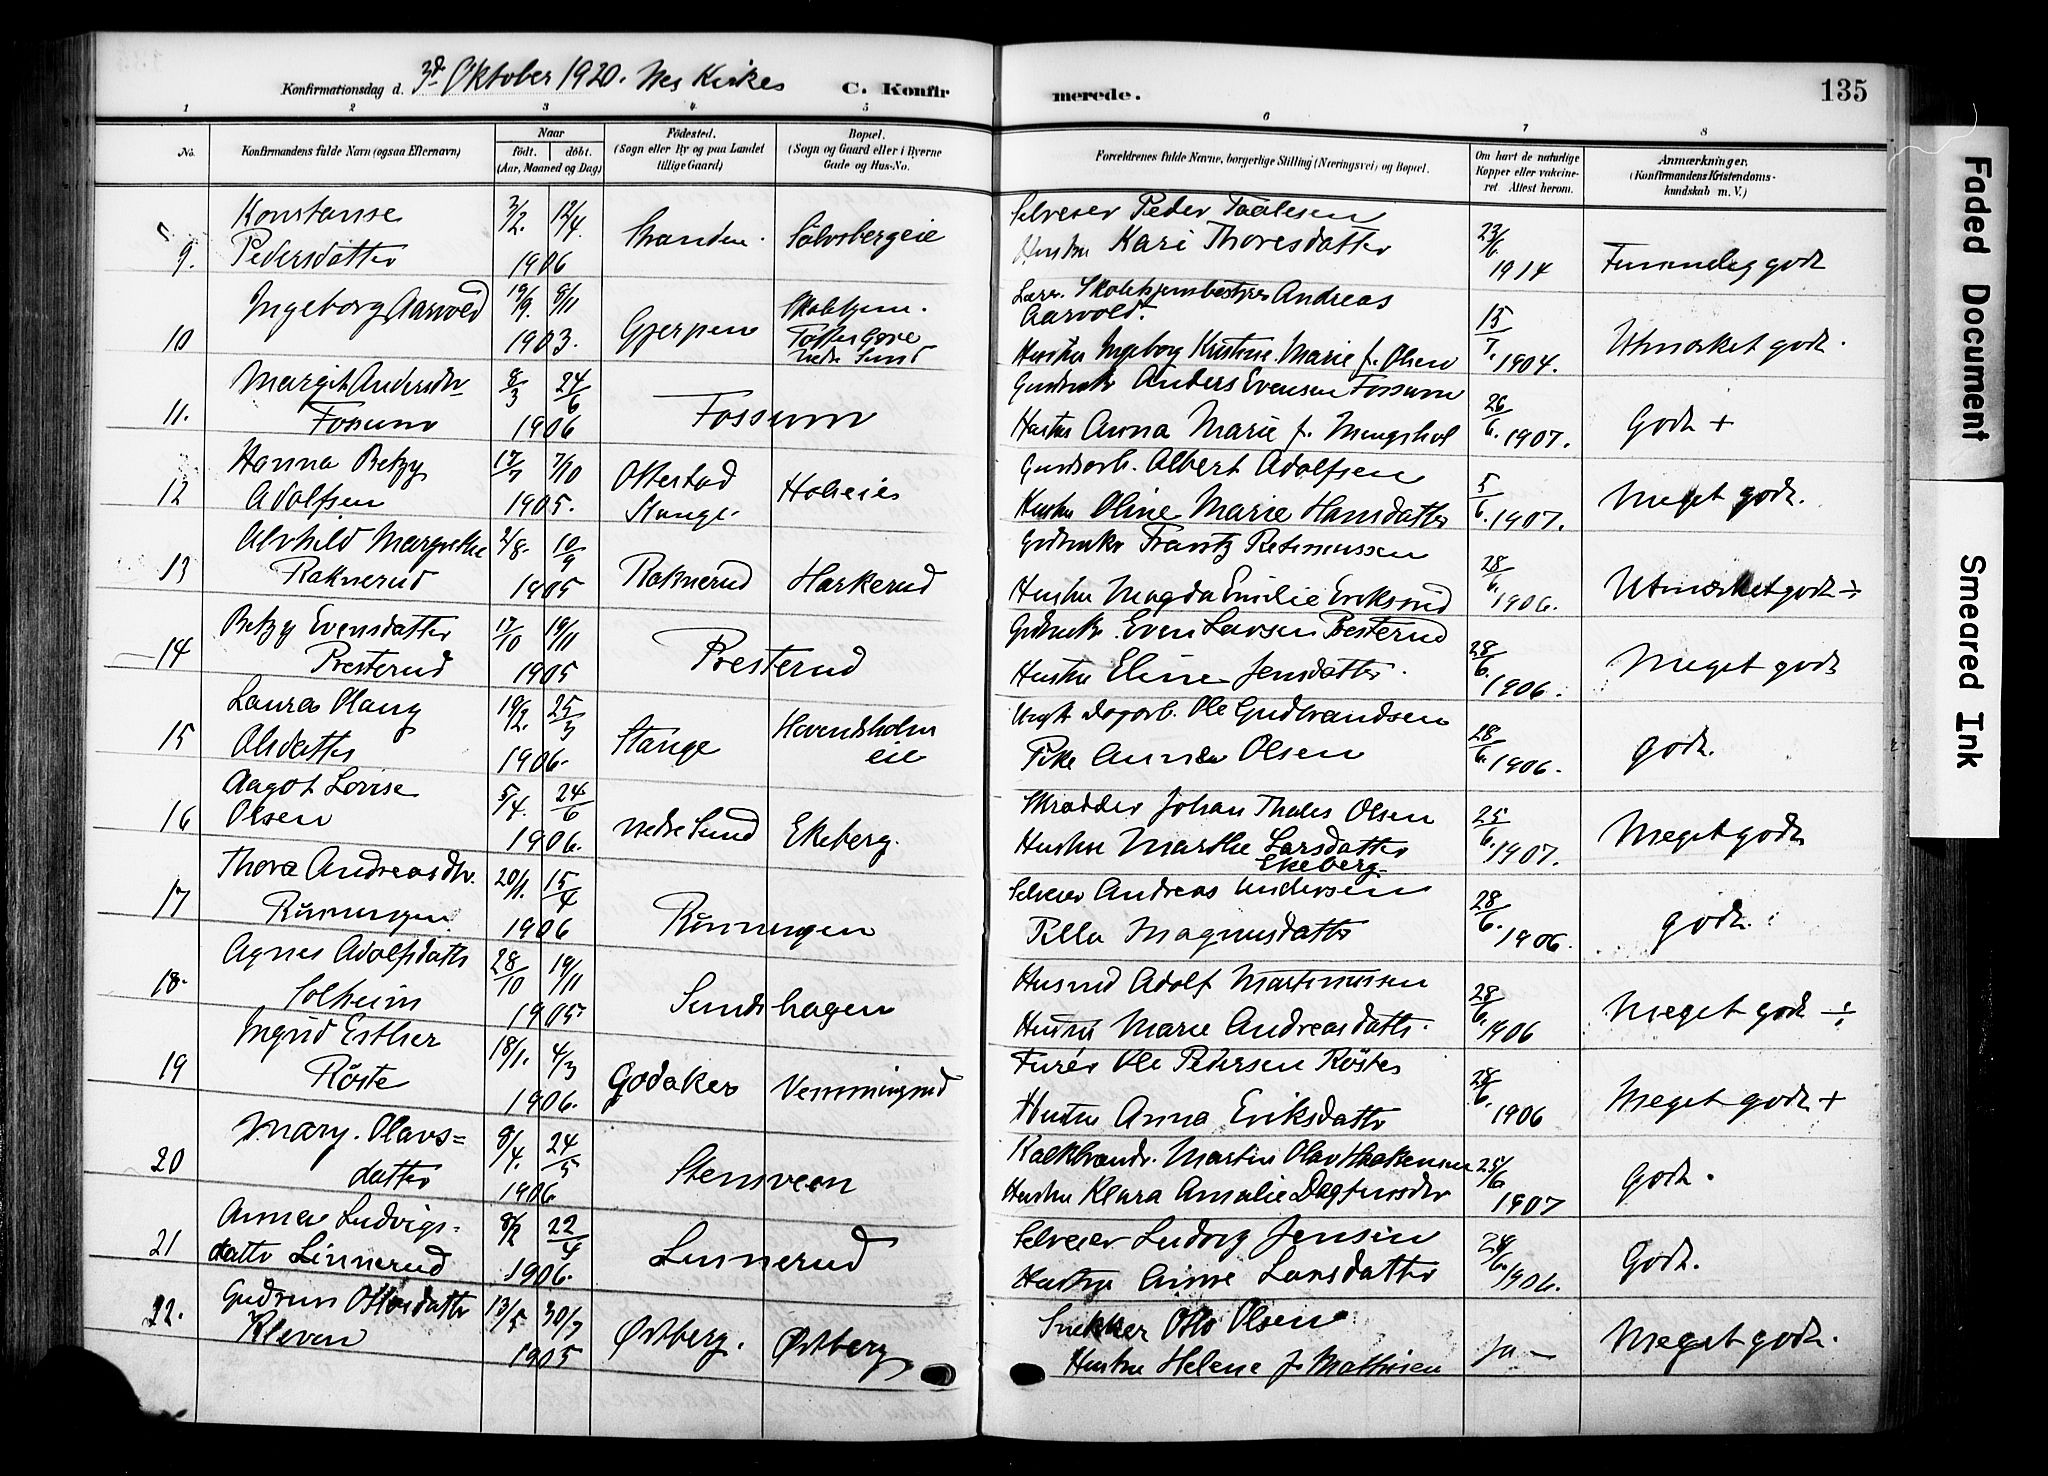 Konfirmationsdag d. 3d. Oktober 1920. Nes Kirkes C. Konfirmerede. 135
1 2 3 4 5 6 7 8
No. Konfirmandens fulde Navn (ogsaa Efternavn) Naar født. døbt. (Aar, Maaned og Dag) Fødested. (Sogn eller By og paa Landet tillige Gaard) Bopæl. (Sogn og Gaard eller i Byerne Gade og Hus-No. Forældrenes fulde Navne, borgerlige Stilling (Næringsvei) og Bopæl. Om havt de naturlige Kopper eller vakcineret. Attest herom. Anmærkninger. (Konfirmandens Kristendomskundskab m. V.)
Konstanse 3/2. 12/4. Selveier Peder Paalesen 23/6
9. Pedersdatter 1906 Stranden. Salvsbergeie Hustru Kari Thoresdatter 1914 Temmelig godt
Ingeborg Aarvold 19/9. 8/11 Skolehjem. Lærer. Skolehjemsbestyrer Andreas
10 1903. Gjerpen Toftes Gave Aarvold. 15/7. 1904. Utmærket godt.
nedre Sund Hustru Ingeborg Kirstine Marie f. Olsen
Margit Andersdtr 8/3 24/6 Gaardbruker Anders Evensen Fossum 26/6.
11. Fossum 1906 Fossum Hustru Anna Marie f. Mengshol 1907. Godt +
Hanna Betzy 17/7 7/10 Ottestad Gaardsarb. Albert Adolfsen 5/6.
12 Adolfsen 1905. Stange. Holseies Hustru Oline Marie Hansdatter 1907. Meget godt.
Alvhild Margrethe 2/8. 10/9 Grdbruker Frantz Rasmussen 28/6.
13 Raknerud 1905 Raknerud Harkerud Hustru Magda Emilie Eriksrud 1906. Utmærket godt ÷
Betzy Evensdatter 17/10 19/11 Grdbruker Even Larsen Presterud 28/6.
14 Presterud 1905 Presterud Hustru Eline Jensdatter. 1906. Meget godt
Laura Olaug 19/2. 25/3 Hovindsholm Ungk. Dagarb. Ole Gudbrandsen 28/6.
15 Olsdatter 1906. Stange eie Pike Anna Olsen 1906. godt.
Aagot Lovise 5/4. 24/6 Skrædder Johan Thales Olsen 25/6.
16 Olsen 1906. nedre Sund Ekeberg. Hustru Marthe Larsdatter 1907. Meget godt
Ekeberg.
Thora Andreasdtr. 20/1. 15/4 Selveier Andreas Andersen 28/6.
17 Rønningen 1906 Rønningen Pella Magnusdatter 1906. godt.
Agnes Adolfsdatter 28/10 19/11 Husmd Adolf Martinussen 28/6.
18. Solheim 1905. Sundshagen Hustru Marie Andreasdatter. 1906 Meget godt ÷
Ingrid Esther 18/1. 4/3 Furér Ole Pedersen Røste 28/6.
19 Røste 1906. Godaker Vemmingrud Hustru Anna Eriksdatter 1906 Meget godt +
Mary. Olavs= 8/4. 24/5 Kalkbrændr. Martin Olav Haakensen 25/6
20 datter 1906. Stensveen Hustru Klara Amalie Dagfinsdtr 1907 Godt.
Anna Ludvigs= 8/2 22/4 Selveier Ludvig Jensen 28/6.
21 datter Linnerud 1906. Linnerud Hustru Anne Larsdatter 1906. Godt.
Gudrun Ottosdatter 13/5 30/7 Snekker Otto Olsen
22. Kleven 1905 Østberg. Østberg Hustru Helene f. Mathisen Ja — Meget godt.
Faded Document
Smeared Ink